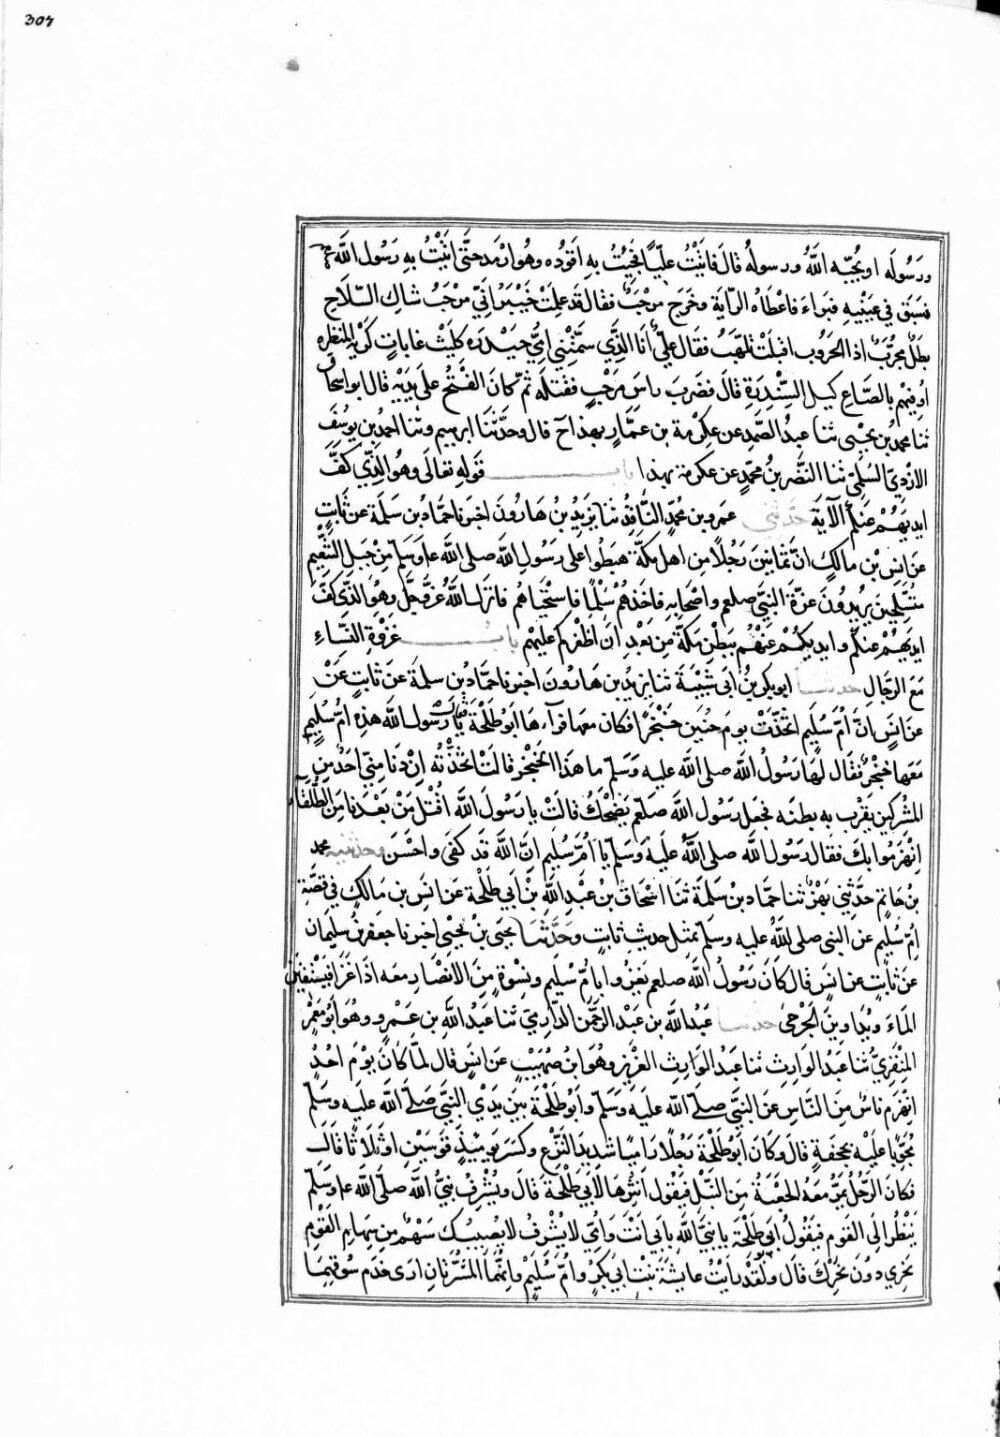 304
ورسُوله او يُحبّه اللهُ ورسولُه قالَ فاتَيْتُ عليّاً فجئتُ بهِ اقودُه وهُو ارْمَد حتّى اتيْتُ بهِ رَسُول الله
فبسَق في عينيهِ فبراءَ فاعْطاه الرّاية وخرَج مرْحَبٌ فقال قد عَلِمَتْ خَيْبرُ انّي مرْحَبُ شاكِ السّلاحِ
بَطلٌ مجرّبٌ اذا الحُروب اقبلَتْ تلهّبُ فقال عليّ أنَا الذّي سَمّتْني امّي حَيْدره كليْثِ غاباتٍ كريْهِ المنظره
اُوفيهم بالصّاعِ كيل السّنْدَرة قالَ فضَربَ راسَ مرحَبٍ فقتلَه ثمّ كانَ الفتْحُ علَى يديْه قال ابو اسحاق
ثنا محمد بن يحيْى ثنا عبدُ الصّمدِ عن عكرمة بن عمّارٍ بهذا ح قال وحدّثنا ابرهيم وثنا احمدُ بن يوسُفَ
الازْديّ السّلميّ ثنا النّضر بن محمّدٍ عن عكرمة بهذا باب قولهِ تعَالَى وهُو الذّي كفَّ
ايديَهُمْ عنكُم الآيَة حدّثني عمرو بن محمّدٍ النّاقدُ ثنا يزيدُ بن هارُونَ اخبرنا حمّادُ بن سَلمَة عن ثابتٍ
عَن انسِ بْنِ مالكٍ انّ ثمانينَ رَجُلاً مِن اهل مكّة هبَطُوا على رَسُولِ الله صلى الله عليه وسَلم مِنْ جَبلِ التّنْعيْم
متسلّحينَ يُريدُونَ غرّةَ النبيّ صلعم واصحابهِ فاخذهُم سلْماً فاستحْياهُم فانزلَ اللهُ عزّ وجلّ وهُو الذّي كفّ
ايديَهُم عنكم وايديكُمْ عنهُم ببَطْن مَكّة من بَعْدِ انْ اظْفركم عليْهم بابُ غزوة النّساءِ
مَعَ الرّجالِ حدثنا ابو بكر بنُ ابي شَيْبَة ثنا يزيد بن هارُون اخبرنا حمّادُ بن سلمة عَن ثابتٍ عَنْ
عَن انَسٍ انّ أمّ سُليم اتّخذَتْ يوم حُنَين خنْجراً فكان معهَا فرآءَهَا ابو طلحة فقال يا رسُولَ الله هذهِ امّ سُليمٍ
مَعَها خنجرٌ فقال لهَا رسُولُ الله صلى الله عليه وسلم ما هذا الخنجرُ قالتْ اتّخذْتُه انْ دَنا منّي احدٌ مِن
المشركين بَقرتُ به بطنَه فجعل رسُول الله صَلعم يضْحَكُ قالتْ يا رَسُولَ الله اقتُلْ مَنْ بَعْدَنا مِنَ الطُّلقَآء
انْهزمُوا بك فقال رسُول الله صلى اللهُ عليه وَسلم يا أمّ سُليم انّ الله قد كفَى واحْسَن وحدثنيه محمد
بن حَاتم حدّثني بَهْز ثنا حمّادُ بن سَلمَة ثنا اسْحَاقُ بن عبْدِ اللهِ بْنِ أبي طلحَة عَن انسِ بن مَالكٍ في قصّة
امّ سُليم عن النبى صلى الله عليه وسلم مثل حديث ثابتٍ وحَدّثنا يحيَى بن يحيَى اخبرنا جعفر بنُ سليمان
عَن ثابتٍ عن انسٍ قال كانَ رَسُولُ الله صلعم يغزُوا بامّ سُليم ونسْوةٍ مِنَ الانصَار معه اذا غزَا فيَسْقينَ
الماءَ ويُداوينَ الجرْحَى حدثنا عبدُ الله بن عبد الرحمنِ الدّارميّ ثنا عَبدُ اللهِ بن عَمْرو وهُوَ ابُو معمَرٍ
المِنْقريُّ ثنا عَبدُ الوارثِ ثنا عَبدُ الوَارثِ العَزيز وهُوَ ابنُ صُهيَبٍ عَن انسٍ قال لمّا كانَ يوْمَ احُدٌ
انهزَم ناسٌ منَ النّاسِ عَن النبيّ صلى الله عليه وسلم وابُو طلحَة بين يدَي النبيّ صلى الله عليه وسلّم
مُجوّباً عليْه بحَجفةٍ قال وكانَ ابُو طلحَة رَجُلاً راميًا شديدَ النّزع وكسَر يوميئذٍ قوسَيْنِ اوْ ثلاثاً قال
فكانَ الرّجُلُ يَمُرّ معَه الجعبَةُ مِنَ النّبْل فيقُول انثُرهَا لأبي طلحَة قال ويُشْرفُ نبيُّ الله صلى الله عليه وسَلّم
ينظُر الَى القوم فيقُولُ ابو طلحَة يا نبيَّ الله بأبي انتَ وامّي لا تُشْرفْ لا يُصيبُك سَهْمٌ من سِهَامِ القَومِ
نحْري دُونَ نحْركَ قال ولقَدْ رايتُ عايشَة بنْتَ ابي بكرٍ وامّ سُليْمٍ وانّهُمَا لَمُشَمّرتانِ ارى خدَم سُوقهِمَا